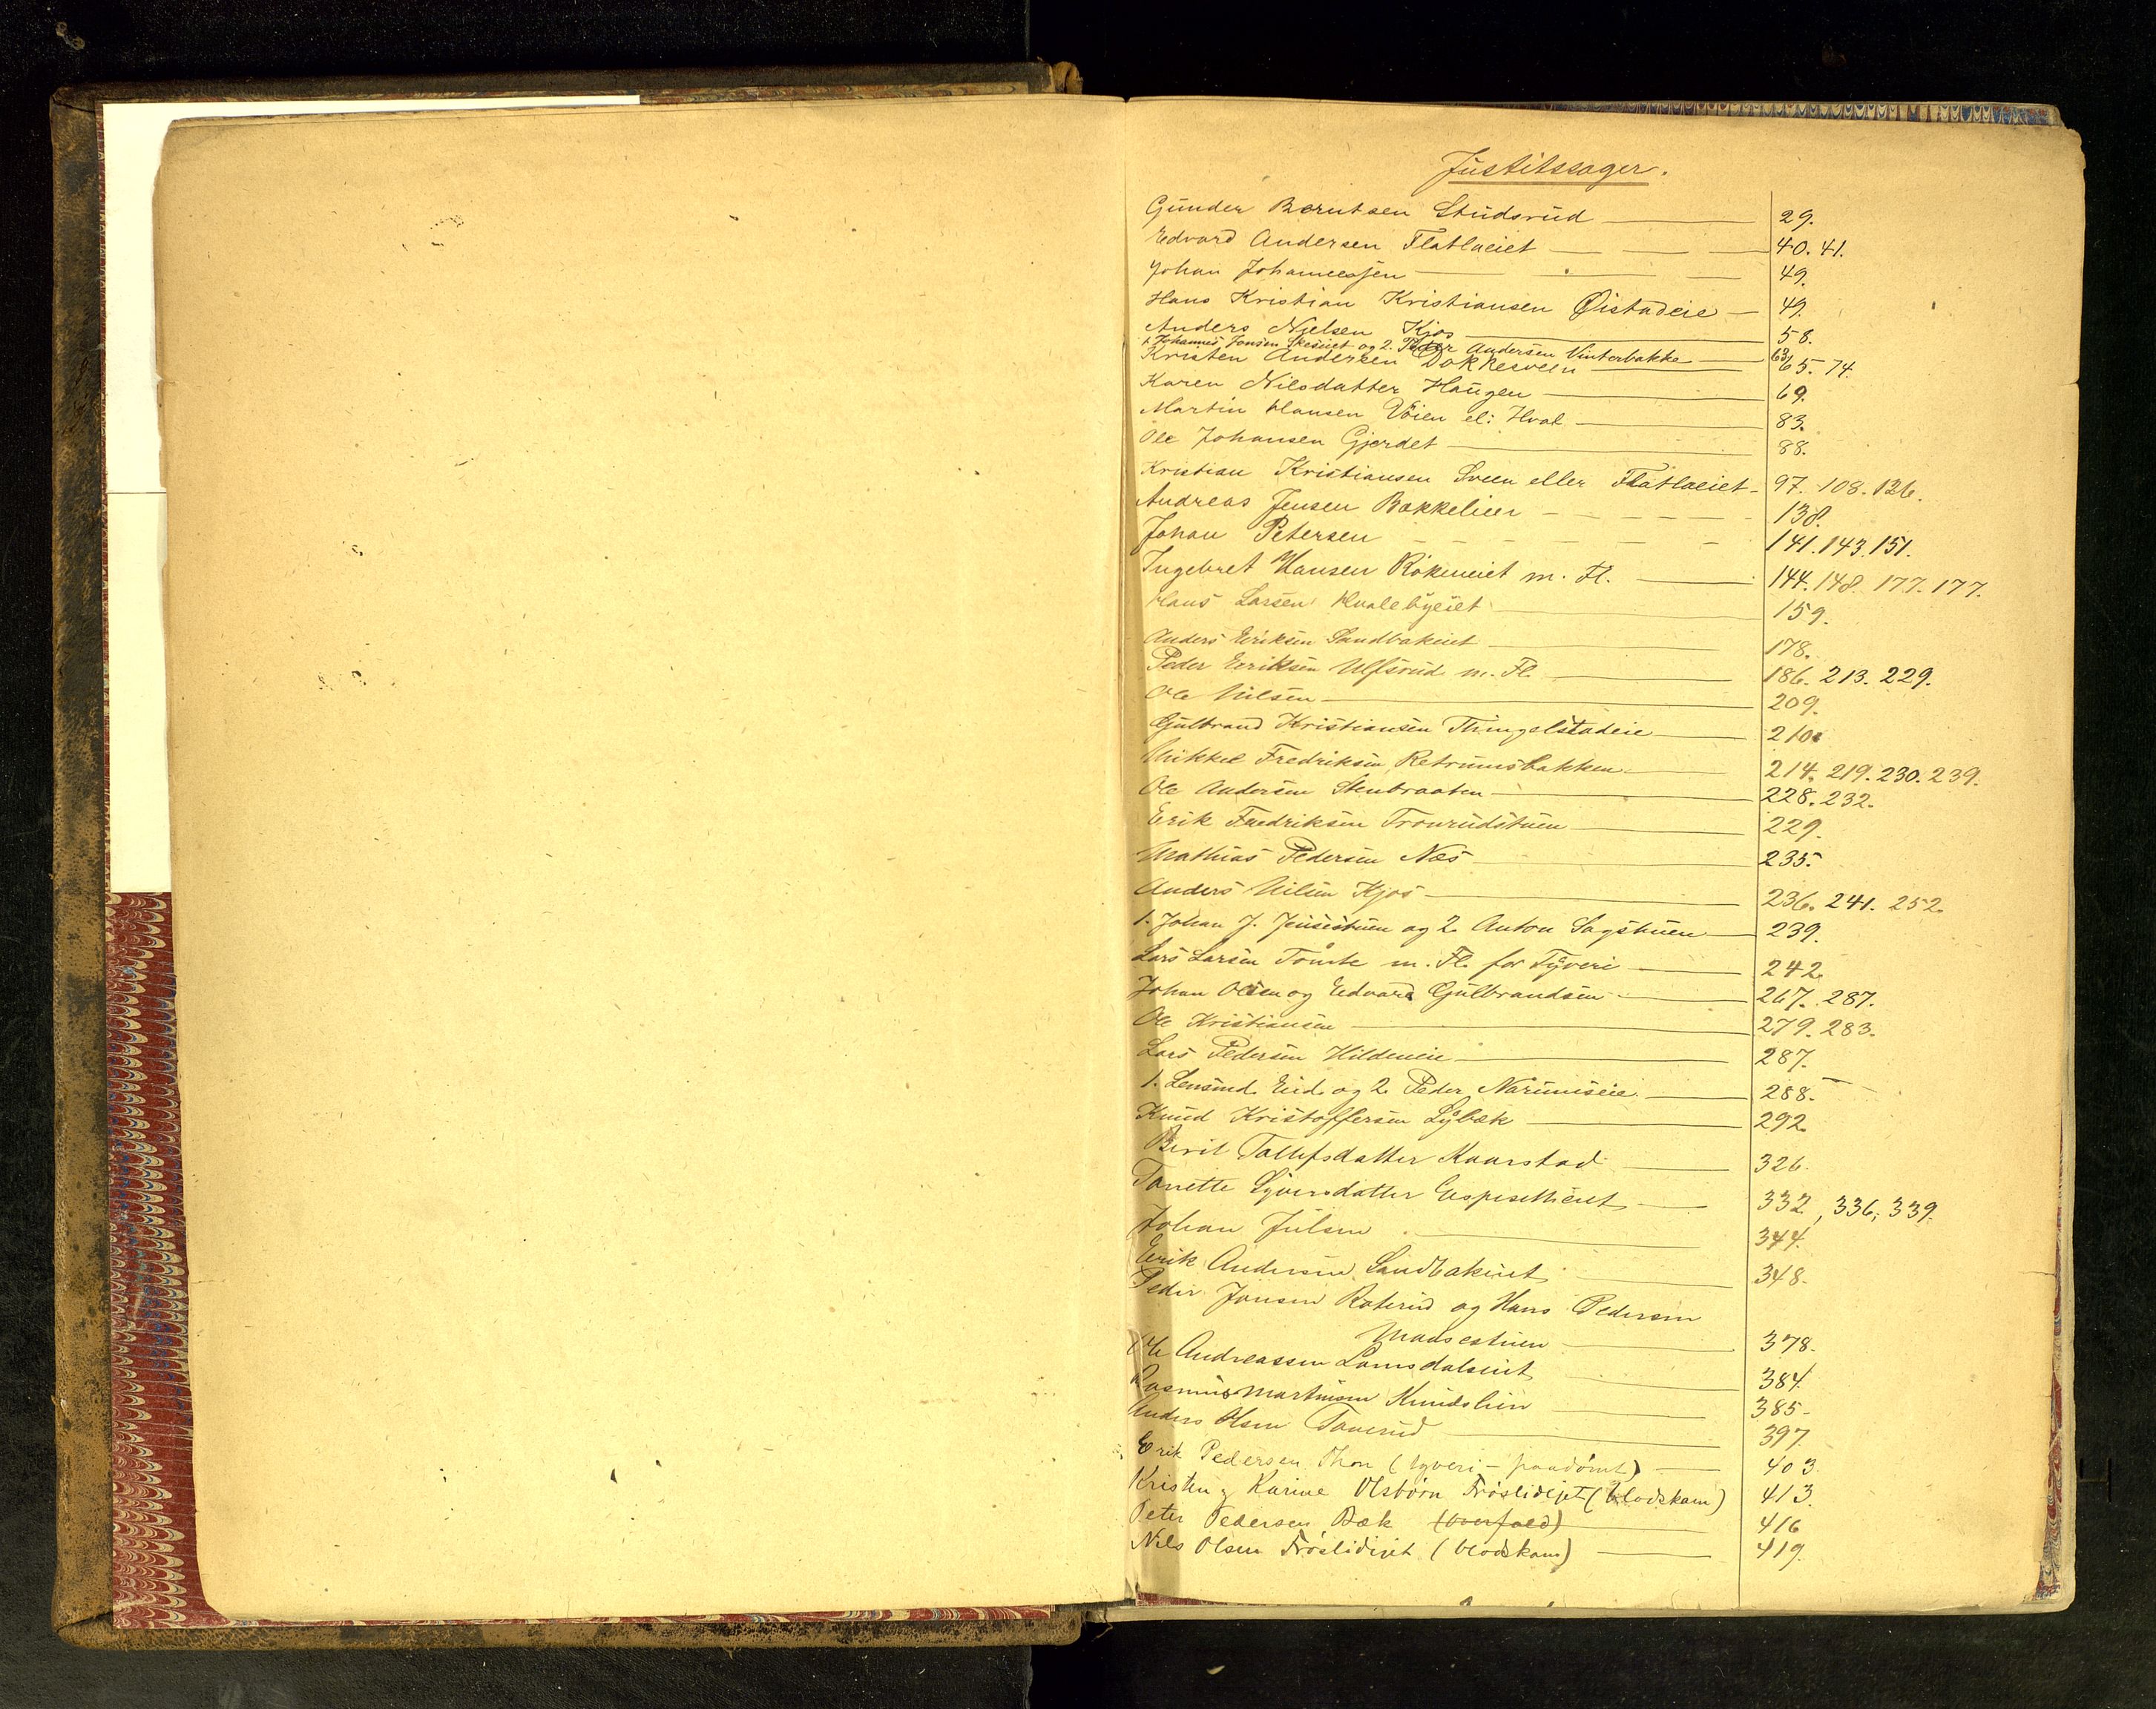 Justitssager.
Gunder Berntsen Studsrud 29.
Edvard Andersen Flatlaeiet 40. 41.
Johan Johannessen 49.
Hans Kristian Kristiansen Øistadeie 49.
Anders Nielsen Kjos 58.
1. Johannes Jensen og 2. Peder Andersen Vinterbakke 63.
Kristen Andersen Dokkesveen 65. 74.
Karen Nilsdatter Haugen 69.
Martin Hansen Vøien el: Hval 83.
Ole Johansen Gjerdet 88.
Kristian Kristiansen Sveen eller Flatlaeiet 97. 108. 126.
Andreas Jensen Bakkelien 138.
Johan Petersen 141. 143. 151.
Ingebret Hansen Rokeneiet m. Fl. 144. 148. 177. 177.
Hans Larsen Hvalebyeiet 159.
Anders Eriksen Sandbakeiet 178.
Peder Eeriksen Ulfsrud m. Fl. 186. 213. 229.
Ole Nilsen 209.
Gulbrand Kristiansen Thingelstadeie 210.
Mikkel Fredriksen Retrumsbakken 214. 219. 230. 239.
Ole Andersen Stenbraaten 228. 232.
Erik Fredriksen Tronrudstuen 229.
Mathias Pedersen Næs 235.
Anders Nilsen Kjos 236. 241. 252.
1. Johan J. Jensestuen og 2. Anton Sagstuen 239.
Lars Larsen Tomte m. Fl. for Tyveri 242.
Johan Olsen og Edvard Gulbrandsen 267. 287.
Ole Kristiansen 279. 283.
Lars Pedersen Hildeneie 287.
1. Lensmd. Eid og 2. Peder Narumseie 288.
Knud Kristoffersen Lybæk 292.
Berit Tollefsdatter Kaarstad 326.
Tonette Syversdatter Espesetheiet 332, 336, 339.
Johan Julsen 344.
Erik Andersen Sandbakeiet 348.
Peder Jonsen Roterud og Hans Pedersen
Maasestuen 378.
Ole Andreassen Lomsdalseiet 384.
Rasmus Martinsen Knudslien 385.
Anders Olsen Tomrud 397.
Erik Pedersen Thon (tyveri - paadømt) 403.
Kristen & Karine Olsbørn Frøslideiet (blodskam) 413.
Peter Pedersen Bæk (overfald) 416
Nils Olsen Frøslideiet (blodskam) 419.